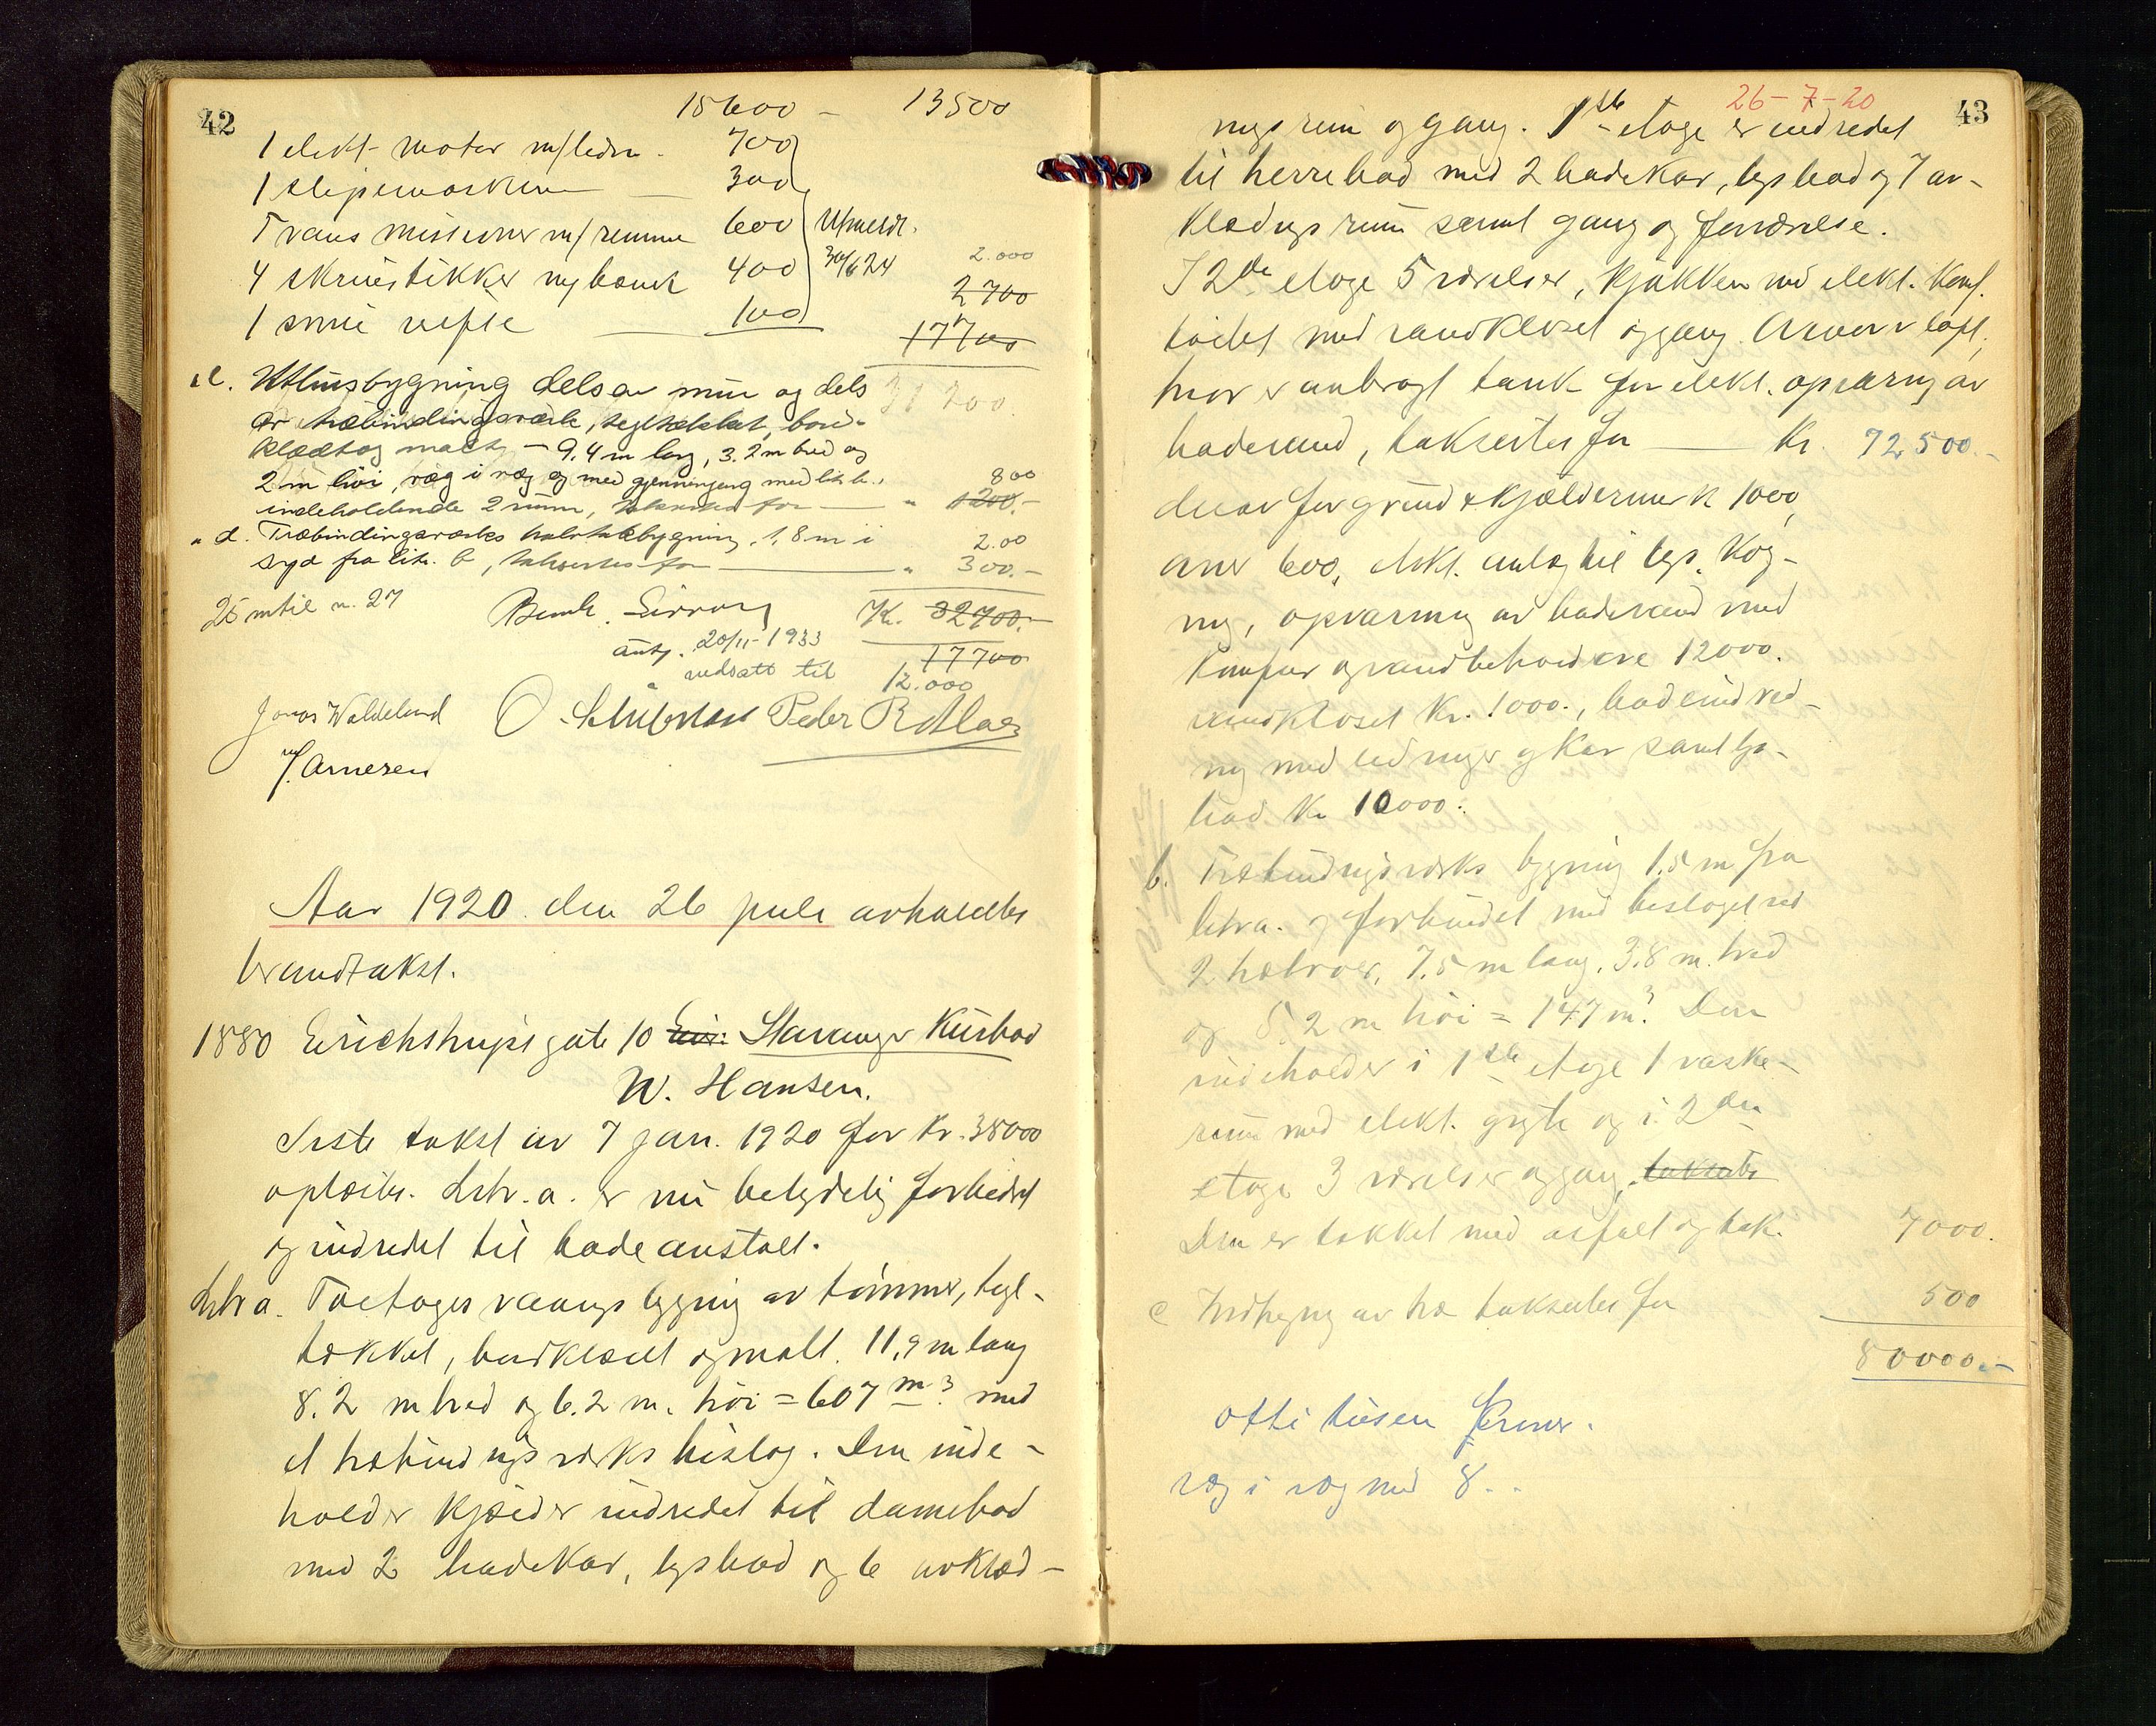 42
15600 - 13500
1 elekt. motor m/ledn. 700
1 slipemaskin 300
Transmissioner m/remme 600 Utmeldt.
4 skruestikker m/bænk 400 30/6 24 2.000
2700
1 smie vifte 100
17700
31200.
" c. Uthusbygning dels av mur og dels
av træbindingsverk, teglsækket, bord-
klædt og malt, - 9.4 m lang, 3.2 m bred og
2 m høi, væg i væg og med gjennemgang med litr. b.,
800
indeholdende 2 rum, takseres for — " 1200.-
" d. Træbindingsverks halvtakbygning, 1,8 m i 2.00
syd fra litr. b, takseres for — " 300.-
25 mtil n. 27 Kr. 32700.-
antg. 20/11-1933 17700
nedsatt til 12.000
Jonas Waldeland Peder
J. Arnesen
Aar 1920 den 26 juli avholdtes
brandtakst.
1880 Erichstrupsgate 10 Stavanger Kurbad
W. Hansen.
Siste takst av 7 jan. 1920 for Kr. 38000
oplæstes. Litr. a. er nu betydelig forbedret
og indredet til badeanstalt.
Litr a. Toetages vaaningsbygning av tømmer, tegl-
tækket, bordklædt og malt. 11,9 m lang
8.2 m bred og 6.2 m. høi = 607 m³. med
et træbindingsverks bislag. Den inde-
holder kjælder indredet til damebad
med 2 badekar, lysbad og 6 avklæd-
26-7-20
43
ningsrum og gang. 1ste etage er indredet
til herrebad med 2 badekar, lysbad og 7 av-
klædningsrum samt gang og forværelse.
I 2de etage 5 værelser, kjøkken med elekt. komf.
toilet med vandkloset og gang. Ovenover loft,
hvor er anbragt tank for elekt. opvarmng av
badevand, takseres for — Kr. 72,500.-
derav for grund & kjældermur K 1000,
ovner 600, elekt. anlæg til lys, kog-
ning, opvarming av badevand med
komfur og vandbeholdere 12000.
vandkloset Kr. 1000., badeindred-
ning med ledninger og kar samt lys-
bad Kr 10000.
b. Træbindingsverks bygning 1.5 m fra
litr a. og forbundet med beslaget ved
2 halvøer, 7.5 m lang, 3.8 m. bred
og 5.2 m høi = 147 m³. Den
indeholder i 1ste etage 1 vaske-
rum med elekt. gryte og i 2den
etage 3 værelser og gang, takseres
Den er tækket med asfalt og tak. 7000.
c Indhegning av træ takseres for 500
80000.-
otti tusen kroner.
væg i væg med 8..